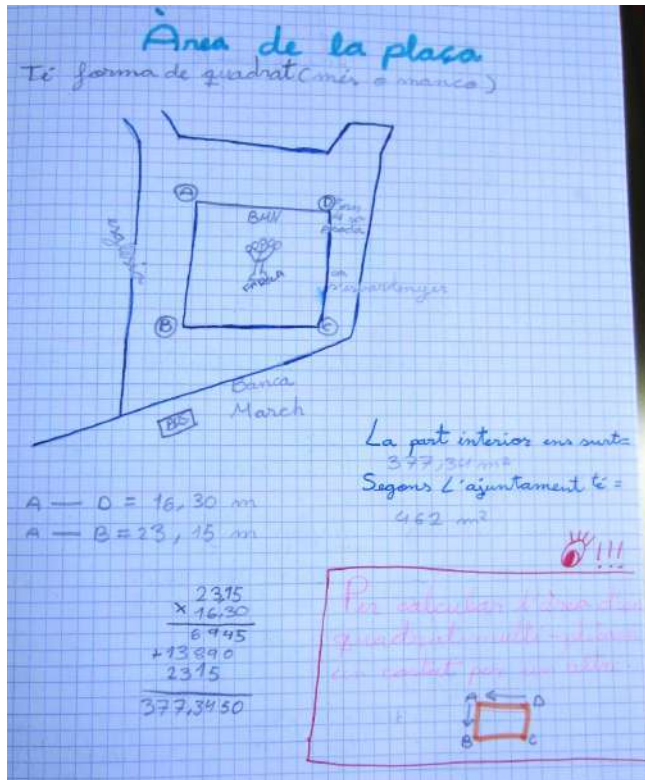 Àrea de la plaça
Té forma de quadrat (més o manco)
A
BMN
D
església
B
C
Banca
March
BUS
La part interior ens surt=
377,34 m²
Segons L'ajuntament té =
462 m²
A — D = 16,30 m
A — B = 23,15 m
!!!
2315
x 16,30
6945
+13890
2315
377,3450
Per calcular l'àrea d'un
quadrat multipliquem
un costat per un altre.
A D
B C